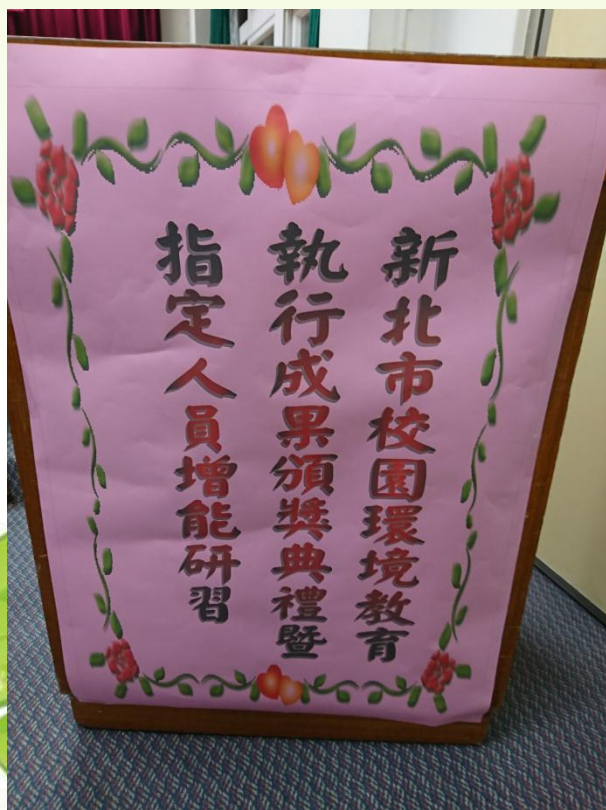 新北市校園環境教育
執行成果頒獎典禮暨
指定人員增能研習